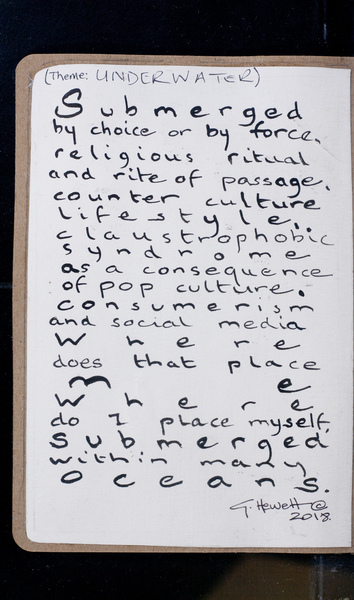 (Theme: UNDERWATER)
Submerged
by choice or by force.
religious ritual
and rite of passage.
counter culture
lifestyle.
claustrophobic
syndrome
as a consequence
of pop culture.
consumerism
and social media
where
does that place
me
where
do I place myself.
submerged
within many
oceans.
G. Hewett ©
2018.